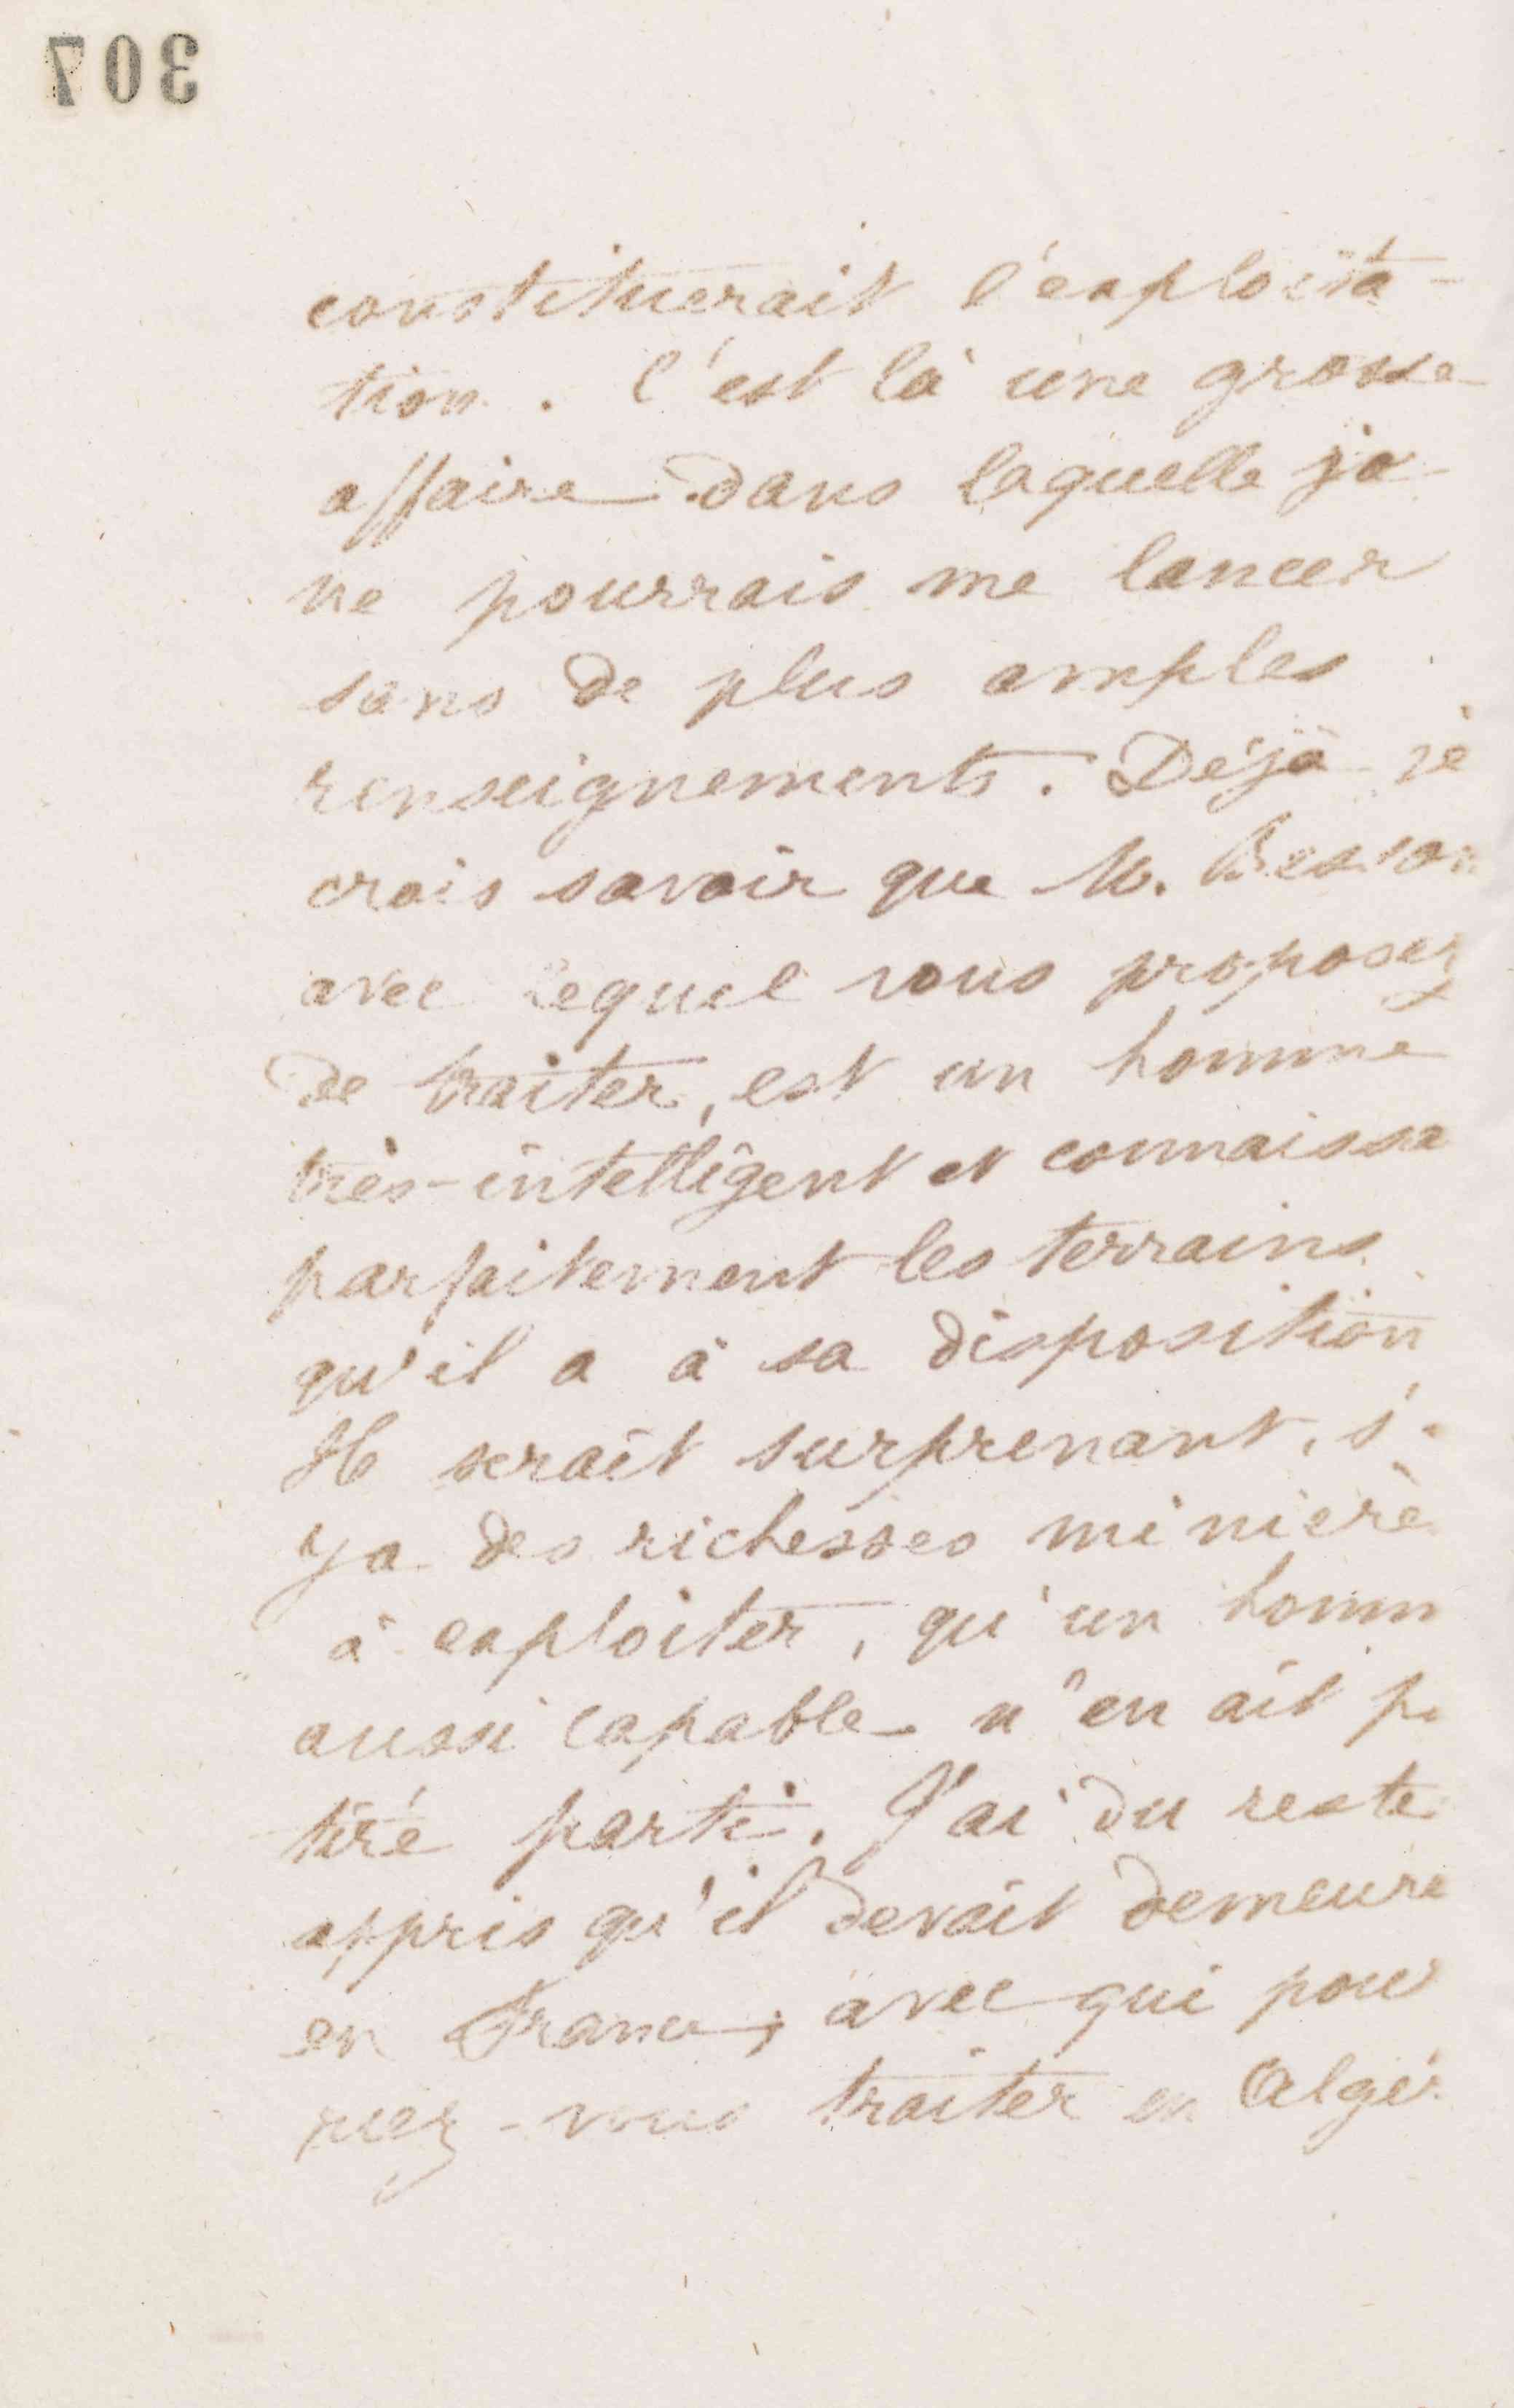 307
constituerait l'exploita-
tion. C'est là une grosse
affaire dans laquelle je
ne pourrais me lancer
sans de plus amples
renseignements. Déjà je
crois savoir que M. Besson
avec lequel vous proposez
de traiter, est un homme
très-intelligent et connaissa
parfaitement les terrains
qu'il a à sa disposition
Il serait surprenant, s'i
y a des richesses minière
à exploiter, qu'un homm
aussi capable n'en ait pa
tiré parti. J'ai du reste
appris qu'il devait demeure
en France; avec qui pour
riez-vous traiter en Algér